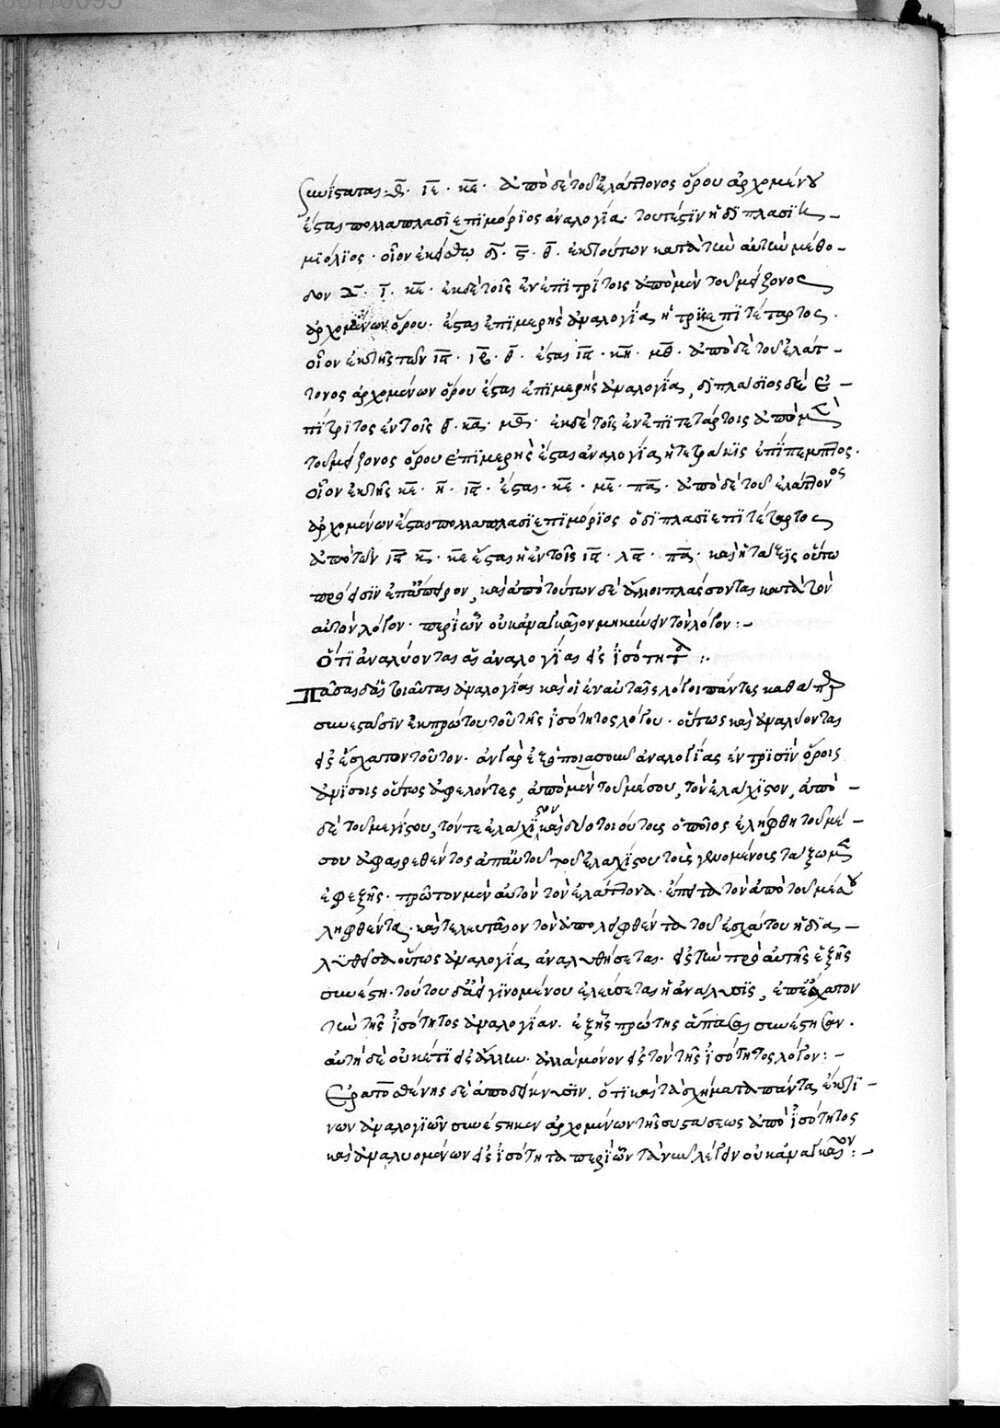 συνίσταται· θ̅· ι̅ε̅· κ̅ε̅· ἀπὸ δὲ τοῦ ἐλάττονος ὅρου ἀρχομένου
ἔσται πολλαπλασιεπιμόριος ἀναλογία· τουτέστιν ἡ διπλασιε-
μιόλιος· οἷον ἐκκείσθω δ̅· ς̅· θ̅· ἐκ τούτων κατὰ τὴν αὐτὴν μέθο-
δον δ̅· ι̅· κ̅ε̅· ἐκ δὲ τοῖς ἐν ἐπιτρίτοις ἀπὸ μὲν τοῦ μείζονος
ἀρχομένων ὅρου· ἔσται ἐπιμερὴς ἀναλογία, ἡ τρισεπιτέταρτος·
οἷον ἐκ τῆς τῶν ι̅ς̅· ι̅β̅· θ̅· ἔσται ι̅ς̅· κ̅η̅· μ̅θ̅· ἀπὸ δὲ τοῦ ἐλάτ-
τονος ἀρχομένων ὅρου ἔσται ἐπιμερὴς ἀναλογία, διπλάσιος δὲ ἐ-
πίτριτος ἐν τοῖς θ̅· κ̅α̅· μ̅θ̅· ἐκ δὲ τοῖς ἐν ἐπιτετάρτοις ἀπὸ μὲν
τοῦ μείζονος ὅρου ἐπιμερὴς ἔσται ἀναλογία, ἡ τετράκις ἐπίπεμπτος·
οἷον ἐκ τῆς κ̅ε̅· κ̅· ι̅ς̅· ἔσται· κ̅ε̅· μ̅ε̅· π̅α̅· ἀπὸ δὲ τοῦ ἐλάττονος
ἀρχομένων ἔσται πολλαπλασιεπιμόριος ὁ διπλασιεπιτέταρτος
ἀπὸ τῶν ι̅ς̅ κ̅· κ̅ε̅ ἔσται ἡ ἐν τοῖς ι̅ς̅· λ̅ς̅· π̅α̅· καὶ ἡ τάξις οὕτω
πρόεισιν ἐπ' ἄπειρον, καὶ ἀπὸ τούτων δὲ ἄλλοι πλάσσονται κατὰ τὸν
αὐτὸν λόγον· περὶ ὧν οὐκ ἀναγκαῖον μηκύνειν τὸν λόγον:-
Ὅτι ἀναλύονται αἱ ἀναλογίαι εἰς ἰσότητα:.
Πᾶσαι δὲ αἱ τοιαῦται ἀναλογίαι καὶ οἱ ἐν αὐταῖς λόγοι πάντες καθάπερ
συνεστᾶσιν ἐκ πρώτου τοῦ τῆς ἰσότητος λόγου· οὕτως καὶ ἀναλύονται
εἰς ἔσχατον τοῦτον· ἂν γὰρ ἐξ ὁποιασοῦν ἀναλογίας ἐν τρισὶν ὅροις
ἀνίσοις οὕτως ἀφελόντες, ἀπὸ μὲν τοῦ μέσου, τὸν ἐλάχιστον, ἀπὸ -
δὲ τοῦ μεγίστου, τόν τε ἐλάχιστον καὶ δύο τοιούτους ὁποῖος ἐλήφθη τοῦ μέ-
σου ἀφαιρεθέντος ἀπ' αὐτοῦ τοῦ ἐλαχίστου τοὺς γενομένους τάξωμεν
ἐφεξῆς· πρῶτον μὲν αὐτὸν τὸν ἐλάττονα· ἔπειτα τὸν ἀπὸ τοῦ μέσου
ληφθέντα· καὶ τελευταῖον τὸν ἀπολειφθέντα τοῦ ἐσχάτου ἡ δια-
λυθεῖσα οὕτως ἀναλογία, ἀναλυθήσεται· εἰς τὴν πρὸ αὐτῆς ἐξ ἧς
συνέστη· τούτου δ' ἀεὶ γινομένου ἐλεύσεται ἡ ἀνάλυσις, ἐπ' ἔσχατον
τὴν τῆς ἰσότητος ἀναλογίαν· ἐξ ἧς πρώτης ἅπασαι συνέστησαν·
αὐτὴ δὲ οὐκέτι εἰς ἄλλην· ἀλλὰ μόνον εἰς τὸν τῆς ἰσότητος λόγον:-
Ἐρατοσθένης δὲ ἀποδείκνυσιν· ὅτι καὶ τὰ σχήματα πάντα, ἐκ τι-
νων ἀναλογιῶν συνέστηκεν ἀρχομένων τῆς συστάσεως ἀπὸ ἰσότητος
καὶ ἀναλυομένων εἰς ἰσότητα περὶ ὧν τὰ νῦν λέγειν οὐκ ἀναγκαῖον:-